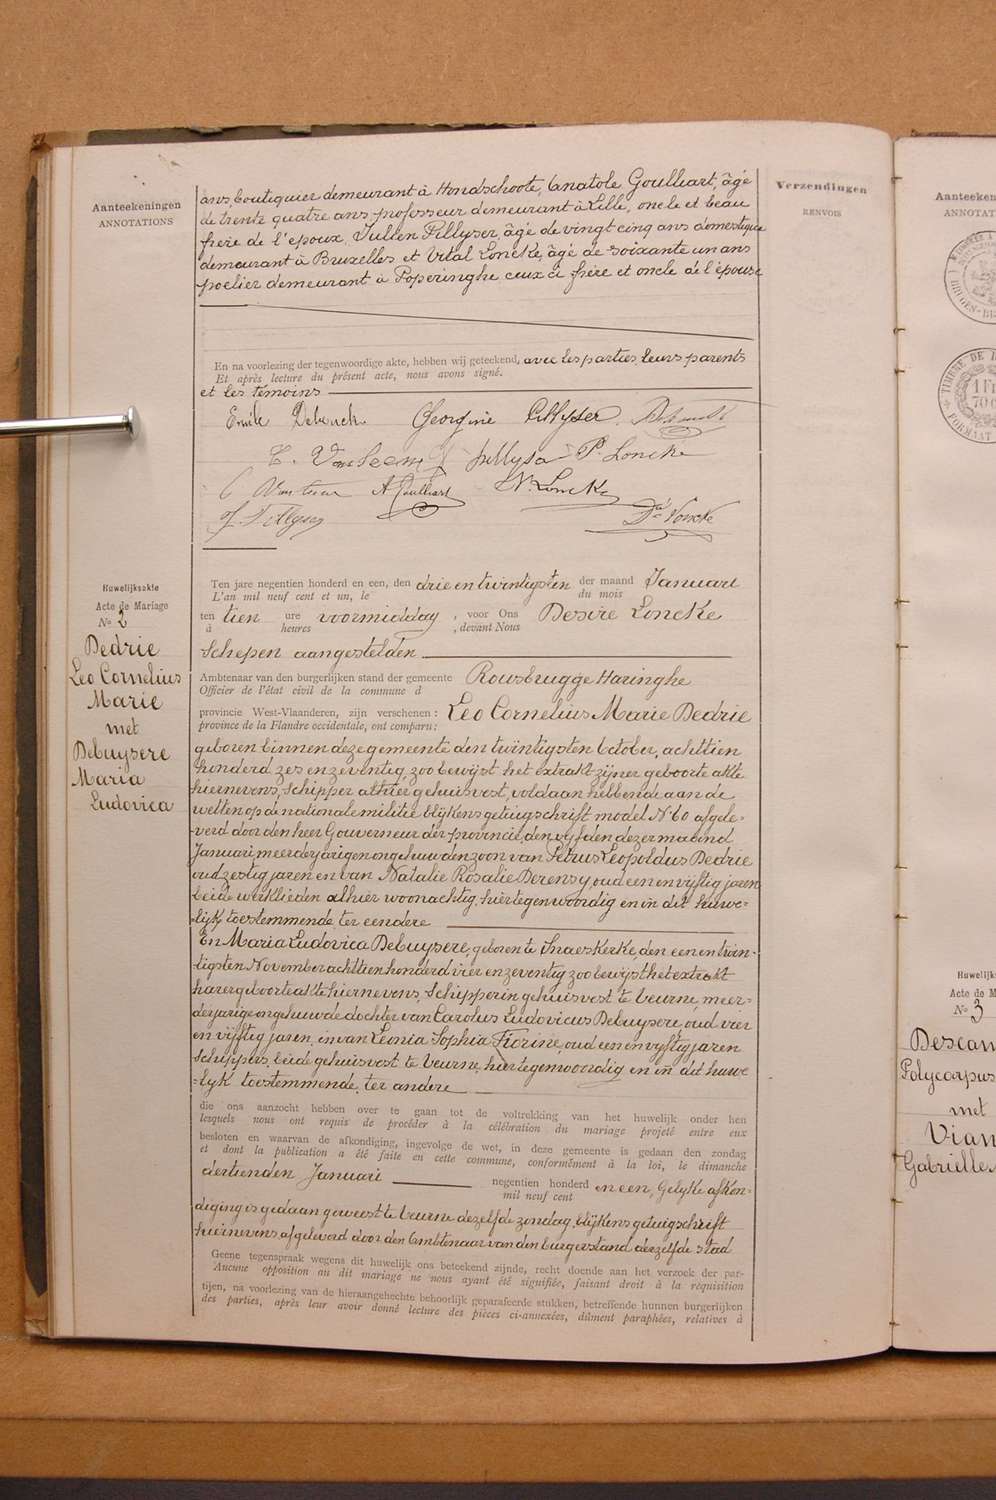 Aanteekeningen
ANNOTATIONS
Verzendingen
RENVOIS
ans, boutiquier demeurant à Hondschoote, Anatole Goulliart, âgé
de trente quatre ans professeur demeurant à Lille, oncle et beau
frère de l'époux, Julien Fillyser, âgé de vingt cinq ans domestique
demeurant à Bruxelles et Vital Loncke, âgé de soixante un ans
poelier demeurant à Poperinghe ceux ci frère et oncle de l'épouse
En na voorlezing der tegenwoordige akte, hebben wij geteekend, avec les parties, leurs parents
Et après lecture du présent acte, nous avons signé.
et les témoins
Emile Georgine Fillyser
P. Loncke
A. Goulliart V. Loncke
J. Fillyser Dé Loncke
Huwelijksakte
Acte de Mariage
No 2
Dedrie
Leo Cornelius
Marie
met
Debuysere
Maria
Ludovica
Ten jare negentien honderd en een, den drie en twintigsten der maand Januari
L'an mil neuf cent et un, le du mois
ten tien ure voormiddag, voor Ons Desire Loncke
à heures , devant Nous
Schepen aangestelden
Ambtenaar van den burgerlijken stand der gemeente Rousbrugge Haringhe
Officier de l'état civil de la commune d
provincie West-Vlaanderen, zijn verschenen: Leo Cornelius Marie Dedrie
province de la Flandre occidentale, ont comparu:
geboren binnen deze gemeente den twintigsten October, achttien
honderd zes en zeventig, zoo bewijst het extrakt zijner geboorte akte
hiernevens, Schipper alhier gehuisvest, voldaan hebbende aan de
wetten op de nationale militie blijkens getuigschrift model N° 60 afgele-
verd door den heer Gouverneur der provincie, den vyfden dezer maand
Januari, meerderjarigen ongehuwden zoon van Petrus Leopoldus Dedrie
oud zestig jaren en van Natalie Rosalie Derensy, oud een en vyftig jaren
beide werklieden alhier woonachtig, hiertegenwoordig en in dit huwe-
-lijk toestemmende ter eendere
En Maria Ludovica Debuysere, geboren te Snaeskerke, den een en twin-
-tigsten November achttien honderd vier en zeventig zoo bewyst het extrakt
harer geboorteakte hiernevens, Schipperin gehuisvest te Veurne, meer-
derjarige ongehuwde dochter van Carolus Ludovicus Debuysere, oud vier
en vijftig jaren, en van Leonia Sophia Fiorine, oud een en vyftig jaren
Schippers, beide gehuisvest te Veurne, hiertegenwoordig en in dit huwe
-lyk toestemmende, ter andere
die ons aanzocht hebben over te gaan tot de voltrekking van het huwelijk onder hen
lesquels nous ont requis de procéder à la célébration du mariage projeté entre eux
besloten en waarvan de afkondiging, ingevolge de wet, in deze gemeente is gedaan den zondag
et dont la publication a été faite en cette commune, conformément à la loi, le dimanche
dertienden Januari negentien honderd en een, Gelyke afkon-
mil neuf cent
diging is gedaan geweest te Veurne dezelfde zondag, blijkens getuigschrift
hiernevens afgeleverd door den Ambtenaar van den burgerstand derzelfde stad
Geene tegenspraak wegens dit huwelijk ons beteekend zijnde, recht doende aan het verzoek der par-
Aucune opposition au dit mariage ne nous ayant été signifiée, faisant droit à la réquisition
tijen, na voorlezing van de hieraangehechte behoorlijk geparafeerde stukken, betreffende hunnen burgerlijken
des parties, après leur avoir donné lecture des pièces ci-annexées, dûment paraphées, relatives à
Aanteekeningen
TIMBRE DE
1 FR
FORMAT
Acte de M
No 3
Polycorpus
met
Gabrielle